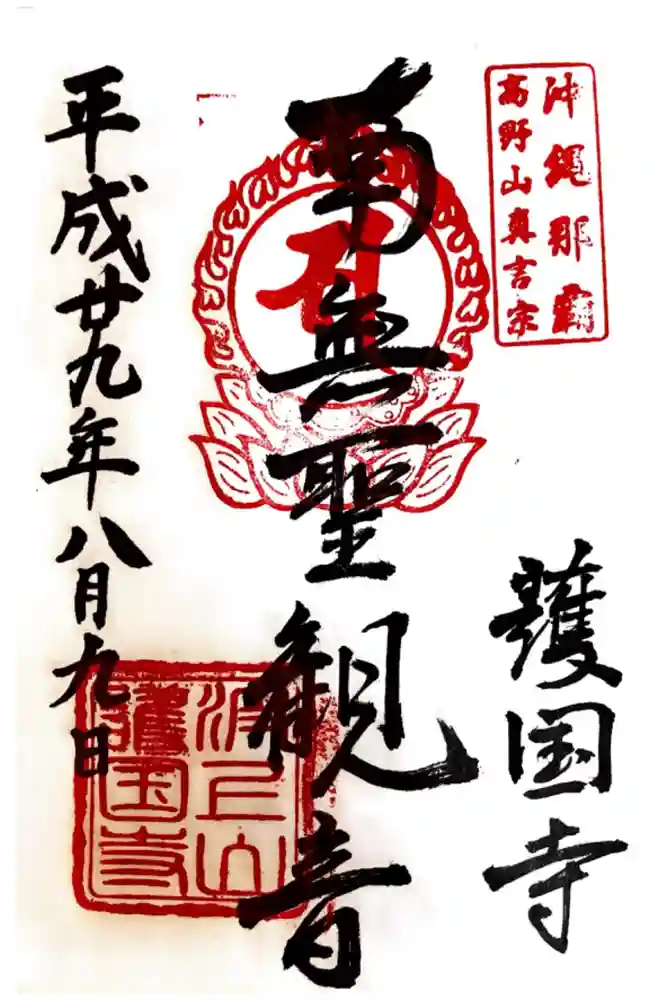 沖縄那覇
高野山真言宗
護国寺
南無聖観音
平成廿九年八月九日
波上山
護国寺